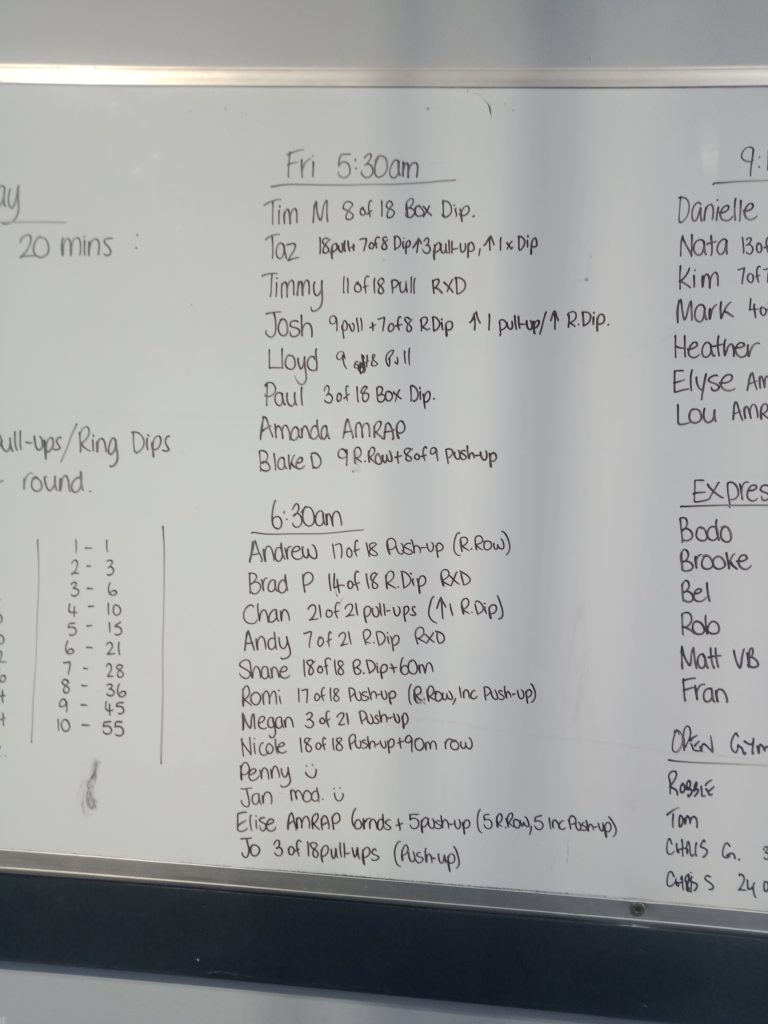 ay
20 mins :
ull-ups/Ring Dips
round.
1 - 1
2 - 3
3 - 6
4 - 10
5 - 15
6 - 21
7 - 28
8 - 36
9 - 45
10 - 55
Fri 5:30am
Tim M 8 of 18 Box Dip.
Taz 18pull+ 7of8 Dip ↑3pull-up, ↑1x Dip
Timmy 11 of 18 Pull RXD
Josh 9pull+7of8 R.Dip ↑1 pull-up/↑ R.Dip.
Lloyd 9 of 18 Pull
Paul 3 of 18 Box Dip.
Amanda AMRAP
Blake D 9 R.Row+8of9 Push-up
6:30am
Andrew 17 of 18 Push-up (R.Row)
Brad P 14 of 18 R.Dip RXD
Chan 21 of 21 pull-ups (↑1 R.Dip)
Andy 7 of 21 R.Dip RXD
Shane 18of18 B.Dip+60m
Romi 17 of 18 Push-up (R.Row, Inc Push-up)
Megan 3 of 21 Push-up
Nicole 18 of 18 Push-up+90m row
Penny
Jan mod.
Elise AMRAP 6rnds + 5push-up (5 R.Row, 5 Inc Push-up)
Jo 3 of 18 pull-ups (Push-up)
9:
Danielle
Nata 13 of
Kim 7 of
Mark 4o
Heather
Elyse Am
Lou AMR
Expres
Bodo
Brooke
Bel
Rob
Matt VB
Fran
OPEN GYM
ROBBIE
Tom
CHRIS G.
CHRIS S 24